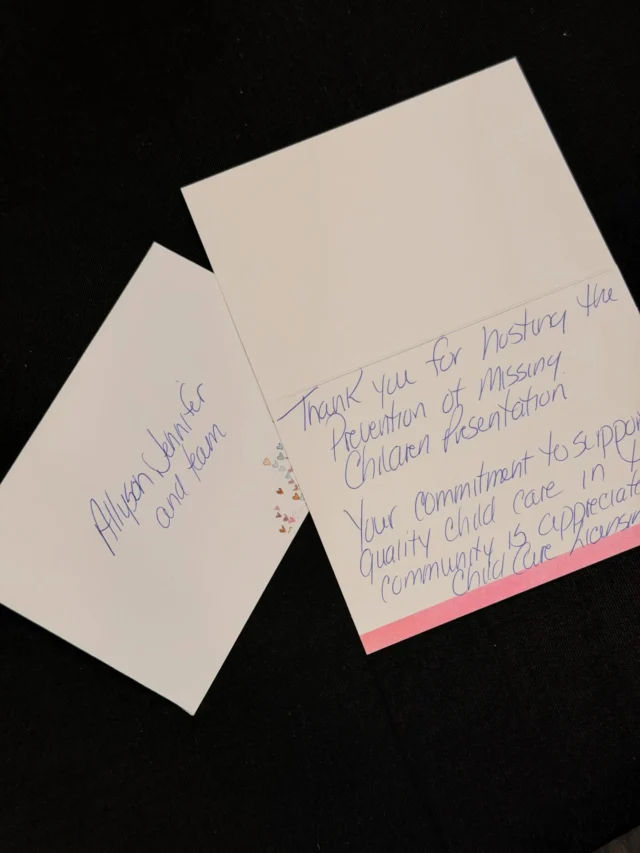 Allyson Jennifer
and team
Thank you for hosting the
Prevention of Missing
Children Presentation
Your commitment to support
quality child care in
community is appreciate
Child Care